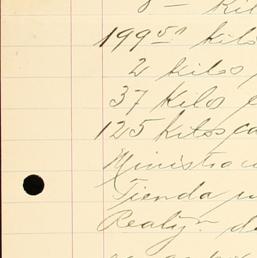 8 - Kil
199 50 kilo
2 kilos
37 Kilos
125 kilos ca
Ministra
Tienda
Realty - d